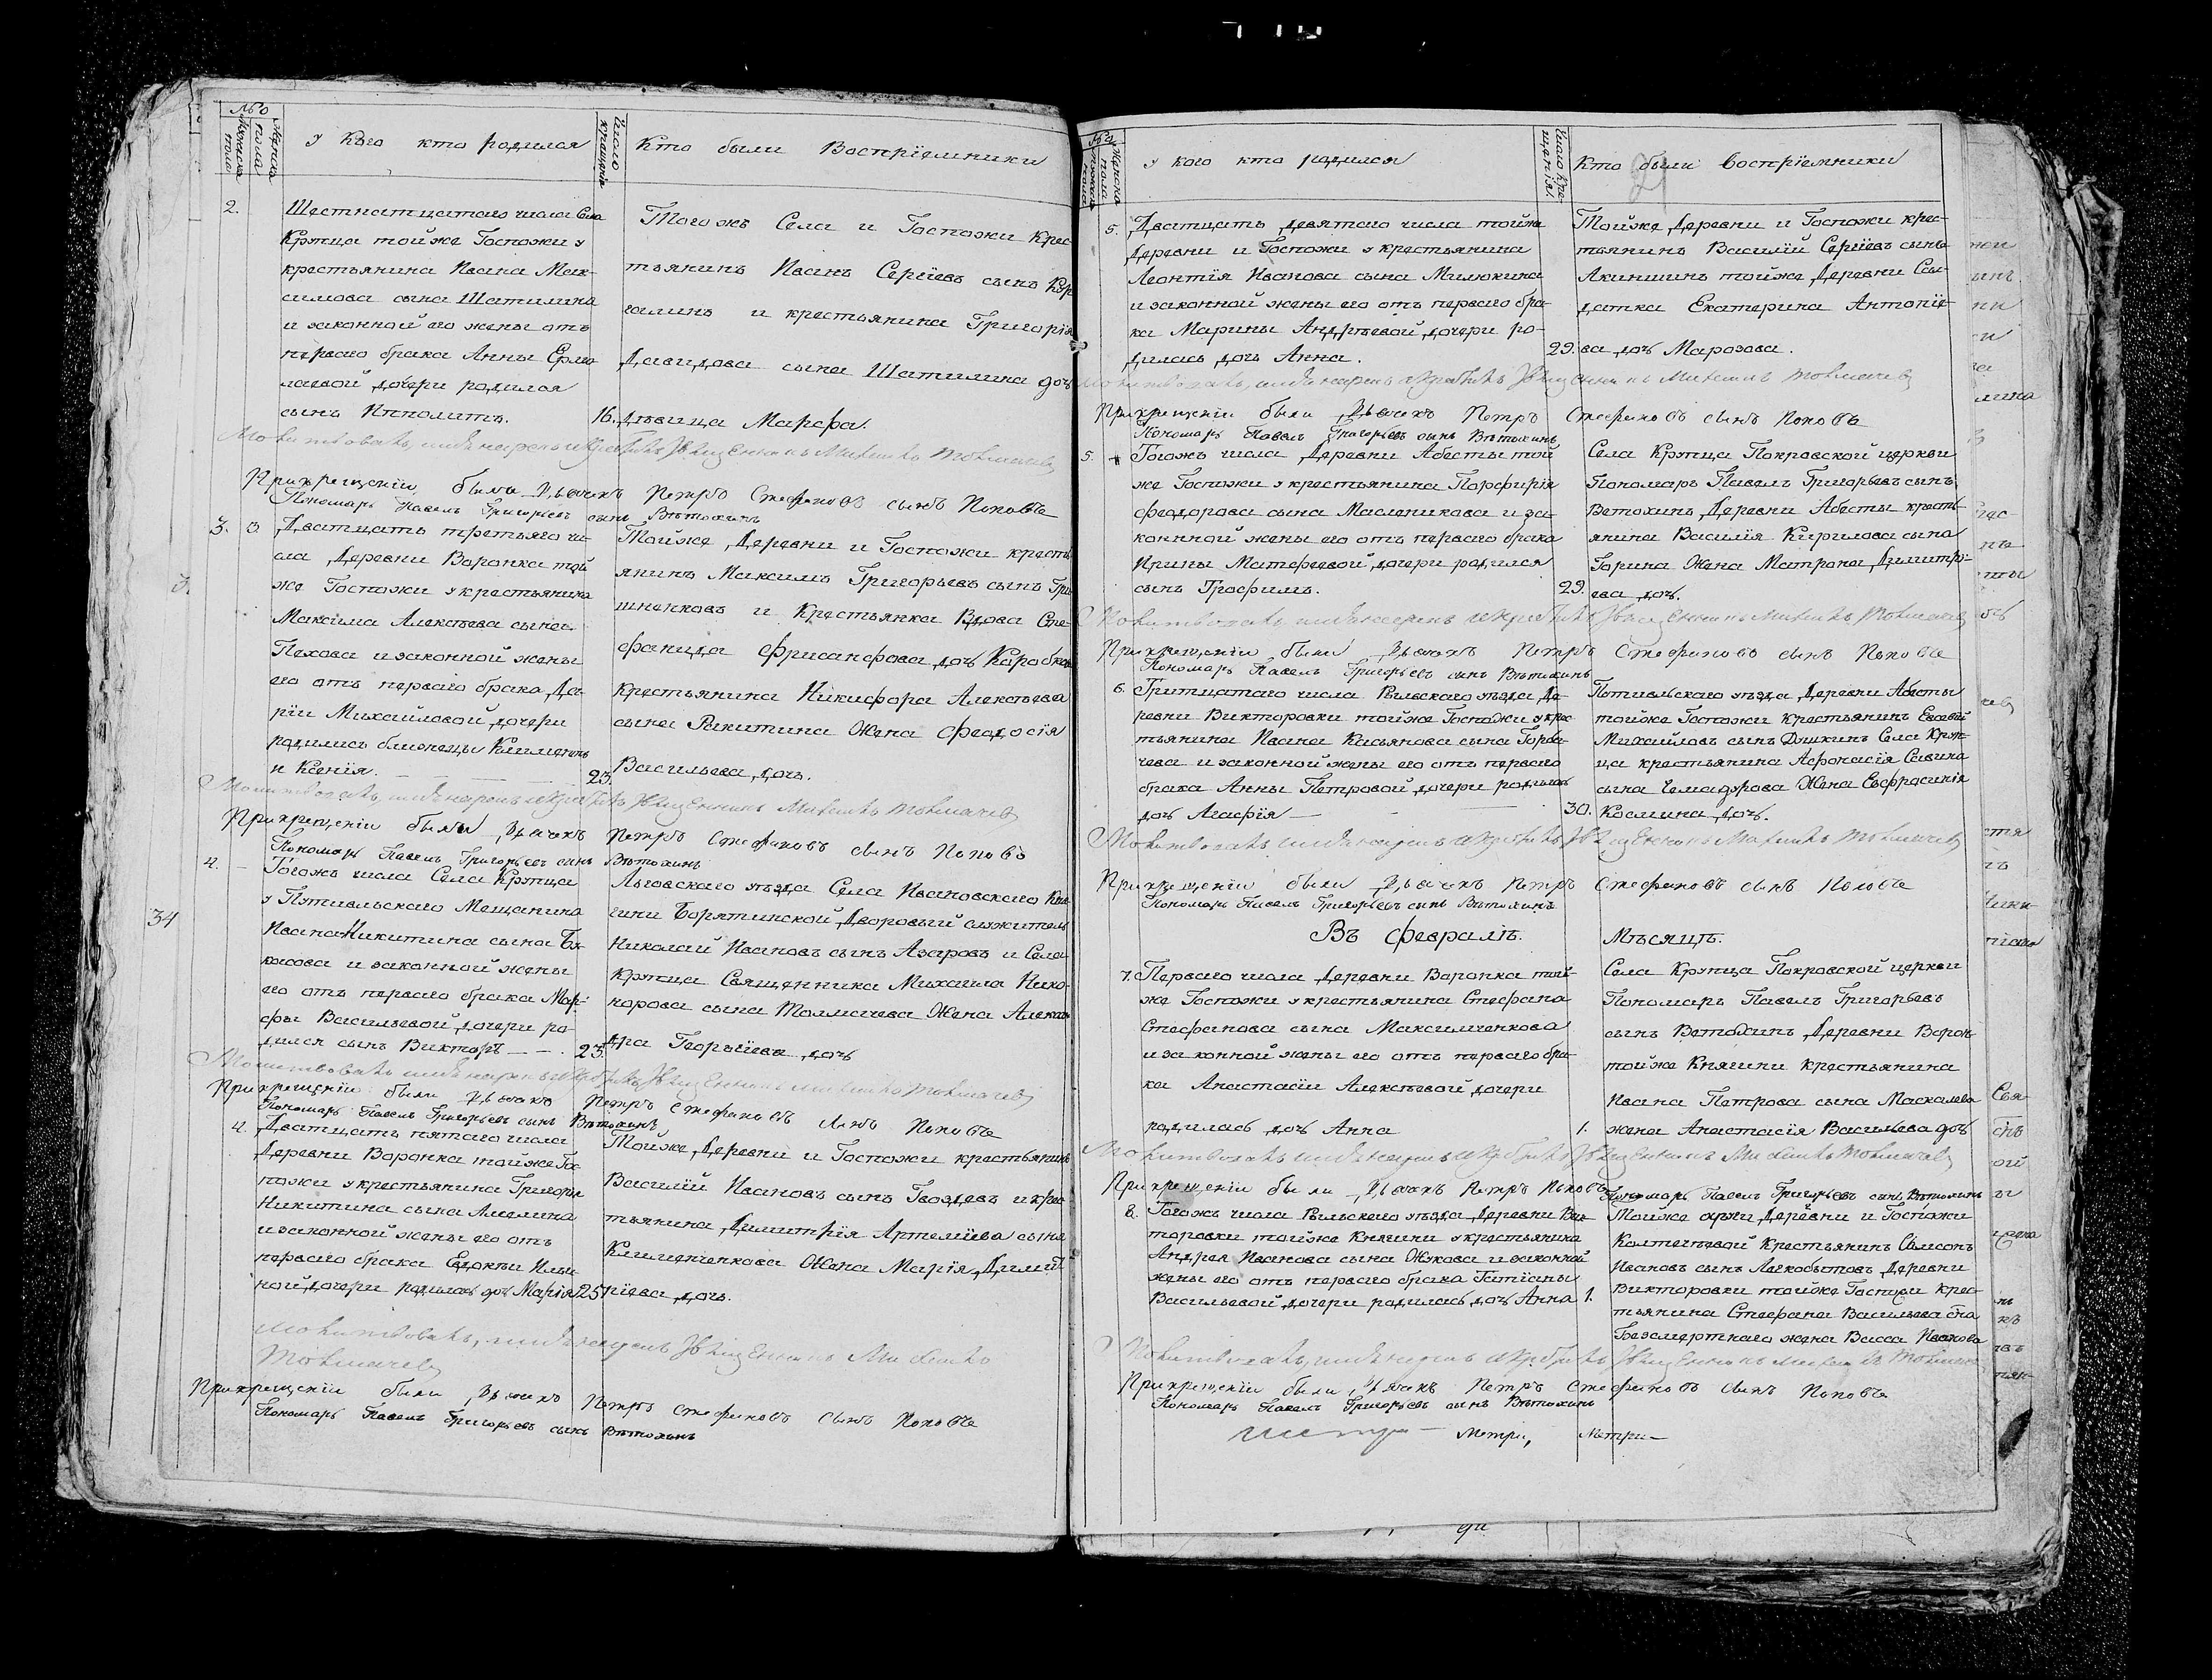 №
Мужеска пола
Женска пола
У кого кто родился
Число крещенія
Кто были Воспріемники
2.
Шестнатцатаго числа Села
Крупца тойже Госпожи у
крестьянина Ивана Мак-
симова сына Шатилина
и законной его жены отъ
перваго брака Анны Ермо-
лаевой дочери родился
сынъ Ипполитъ. 16.
Тогожъ Села и Госпожи Крес-
тьянинъ Иванъ Сергіевъ сынъ
и крестьянина Григорія
Давидова сына Шатилина дочь
Дѣвица Марфа.
Молитвовалъ, имя нарекъ и крестилъ Священникъ Михаилъ Толмачевъ
При крещеніи были Дьячекъ Петръ Стефановъ сынъ Поповъ
Пономарь Павелъ Григорьевъ сынъ Вѣтохинъ
3. 3.
Дватцать третьяго чи-
сла Деревни Воронка той
же Госпожи у крестьянина
Максима Алексѣева сына
Пехова и законной жены
его отъ перваго брака Да-
рьи Михайловой дочери
родились близнецы Климентъ
и Ксенія. 23.
Тойже Деревни и Госпожи кресть-
янинъ Максимъ Григорьевъ сынъ Гри-
шненковъ и Крестьянка Вдова Сте-
фанида Фрисанфова дочь
Крестьянина Никифора Алексѣева
сына Ракитина Жена Феодосія
Васильева дочь.
Молитвовалъ, имя нарекъ и крестилъ Священникъ Михаилъ Толмачевъ
При крещеніи были Дьячекъ Петръ Стефановъ сынъ Поповъ
Пономарь Павелъ Григорьевъ сынъ Вѣтохинъ
34
4.
Тогожъ числа Села Крупца
у Путивльскаго Мещанина
Ивана Никитина сына
и законной жены
его отъ перваго брака Мар-
фы Васильевой дочери ро-
дился сынъ Викторъ 23.
Льговскаго уѣзда Села Ивановскаго Кня-
гини Борятинской Дворовый служитель
Николай Ивановъ сынъ Азаровъ и Села
Крупца Священника Михаила Нико-
норова сына Толмачева Жена Алексан-
дра Георгіева дочь
Молитвовалъ имя нарекъ и крестилъ Священникъ Михаилъ Толмачевъ
При крещеніи были Дьячекъ Петръ Стефановъ сынъ Поповъ
Пономарь Павелъ Григорьевъ сынъ Вѣтохинъ
4.
Дватцать пятаго числа
Деревни Воронка тойже Гос-
пожи у крестьянина Григорія
Никитина сына Амелина
и законной жены его отъ
перваго брака Евдокіи Ильи-
ной дочери родилась дочь Марія 25
Тойже Деревни и Госпожи крестьянинъ
Василій Ивановъ сынъ Гвоздевъ и крес-
тьянина Димитрія Артеміева сына
Климентенкова Жена Марія Димит-
ріева дочь.
Молитвовалъ, имя нарекъ Священникъ Михаилъ
Толмачевъ
При крещеніи были Дьячекъ Петръ Стефановъ сынъ Поповъ
Пономарь Павелъ Григорьевъ сынъ Вѣтохинъ
У кого кто родился
Число крещенія
Кто были Воспріемники
21
5.
Дватцать девятаго числа тойже
Деревни и Госпожи у крестьянина
Леонтія Иванова сына Милюкина
и законной жены его отъ перваго бра-
ка Марины Андрѣевой дочери ро-
дилась дочь Анна. 29.
Тойже Деревни и Госпожи крес-
тьянинъ Василій Сергіевъ сынъ
Акиншинъ тойже Деревни Сол-
датка Екатерина Антоніе-
ва дочь Марозова.
Молитвовалъ, имя нарекъ и крестилъ Священникъ Михаилъ Толмачевъ
При крещеніи были Дьячекъ Петръ Стефановъ сынъ Поповъ
Пономарь Павелъ Григорьевъ сынъ Вѣтохинъ
5.
Тогожъ числа Деревни Абесты той
же Госпожи у крестьянина Порфирія
Феодорова сына Масленикова и за-
конной жены его отъ перваго брака
Ирины Матфеевой дочери родился
сынъ Трофимъ. 29.
Села Крупца Покровской церкви
Пономарь Павелъ Григорьевъ сынъ
Ветохинъ Деревни Абесты кресть-
янина Василія Кирилова сына
Горина Жена Матрона Димитрі-
ева дочь.
Молитвовалъ имя нарекъ и крестилъ Священникъ Михаилъ Толмачевъ
При крещеніи были Дьячекъ Петръ Стефановъ сынъ Поповъ
Пономарь Павелъ Григорьевъ сынъ Вѣтохинъ
6.
Тритцатаго числа Рыльскаго уѣзда Де-
ревни Викторовки тойже Госпожи у крес-
тьянина Ивана Касьянова сына Горба-
чева и законной жены его отъ перваго
брака Анны Петровой дочери родилась
дочь Агафія 30.
Путивльскаго уѣзда Деревни Абесты
тойже Госпожи крестьянинъ
Михайловъ сынъ Душкинъ Села Круп-
ца крестьянина Афонасія Савина
сына Жена Евфросинія
Космина дочь.
Молитвовалъ имя нарекъ и крестилъ Священникъ Михаилъ Толмачевъ
При крещеніи были Дьячекъ Петръ Стефановъ сынъ Поповъ
Пономарь Павелъ Григорьевъ сынъ Вѣтохинъ
Въ Февралѣ. Мѣсяцѣ.
7.
Перваго числа Деревни Воронка той-
же Госпожи у крестьянина Стефана
Стефанова сына Максимченкова
и законной жены его отъ перваго бра-
ка Анастасіи Алексѣевой дочери
родилась дочь Анна 1.
Села Крупца Покровской церкви
Пономарь Павелъ Григорьевъ
сынъ Ветохинъ Деревни Ворон-
тойже Княгини крестьянина
Ивана Петрова сына Маскалева
жена Анастасія Васильева дочь
Молитвовалъ имя нарекъ и крестилъ Священникъ Михаилъ Толмачевъ
При крещеніи были Дьячекъ Петръ Поповъ
Пономарь Павелъ Григорьевъ сынъ Вѣтохинъ
8.
Тогожъ числа Рыльскаго уѣзда Деревни Вик-
торовки тойже Княгини у крестьянина
Андрея Иванова сына Жукова и законной
жены его отъ перваго брака Татіаны
Васильевой дочери родилась дочь Анна 1.
Тойже Деревни и Госпожи
Крестьянинъ
Ивановъ сынъ Легкобытовъ Деревни
Викторовки тойже Госпожи крес-
тьянина Стефана Васильева сна
Безсмертнаго жена Васса Иванова
Молитвовалъ, имя нарекъ и крестилъ Священникъ Михаилъ
При крещеніи были Дьячекъ Петръ Стефановъ сынъ Поповъ
Пономарь Павелъ Григорьевъ сынъ Вѣтохинъ
Метри, Метри—